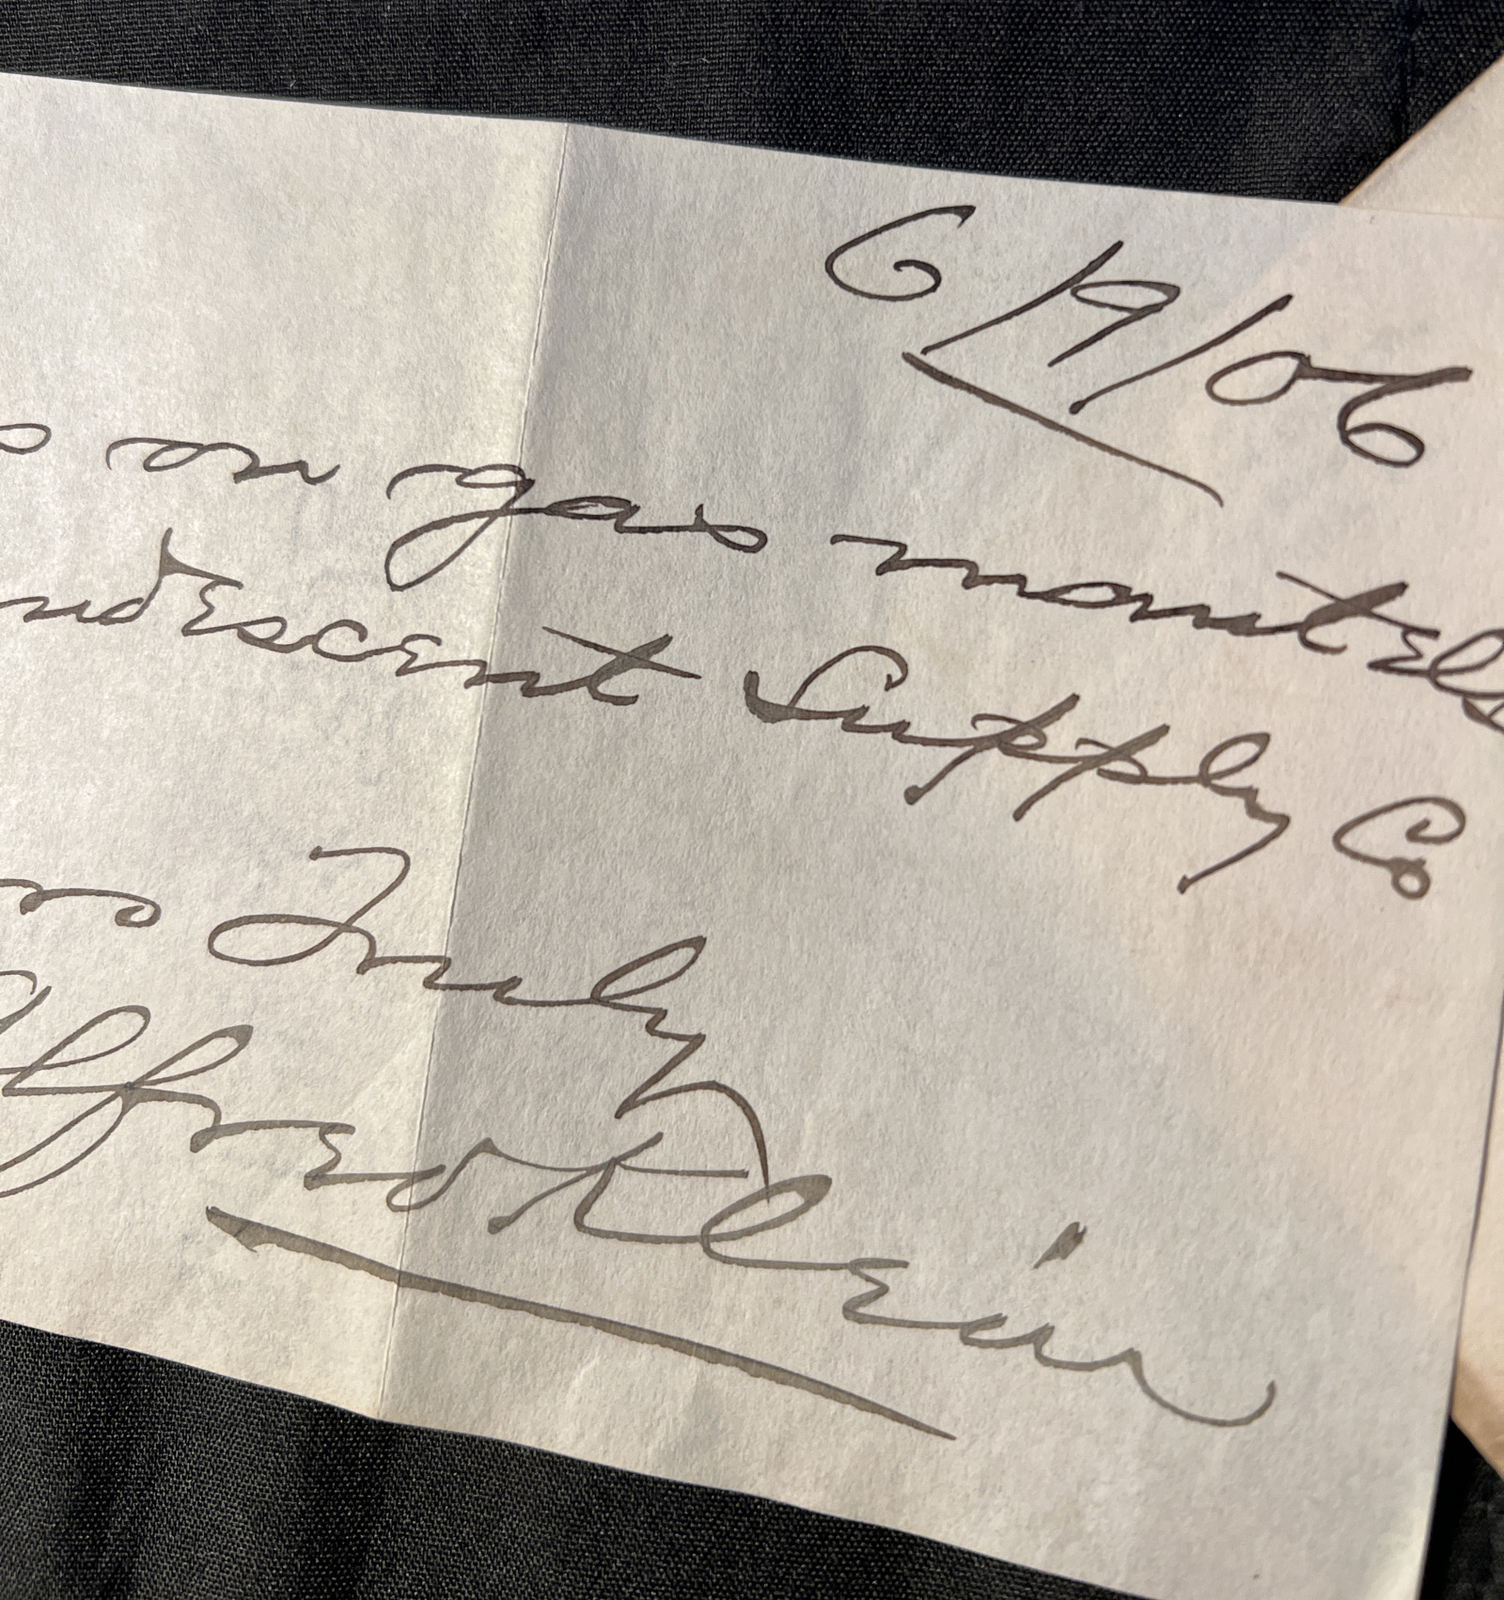 6/9/06
on gas mantels
ndescent Supply Co
Truly
Alfred Klein